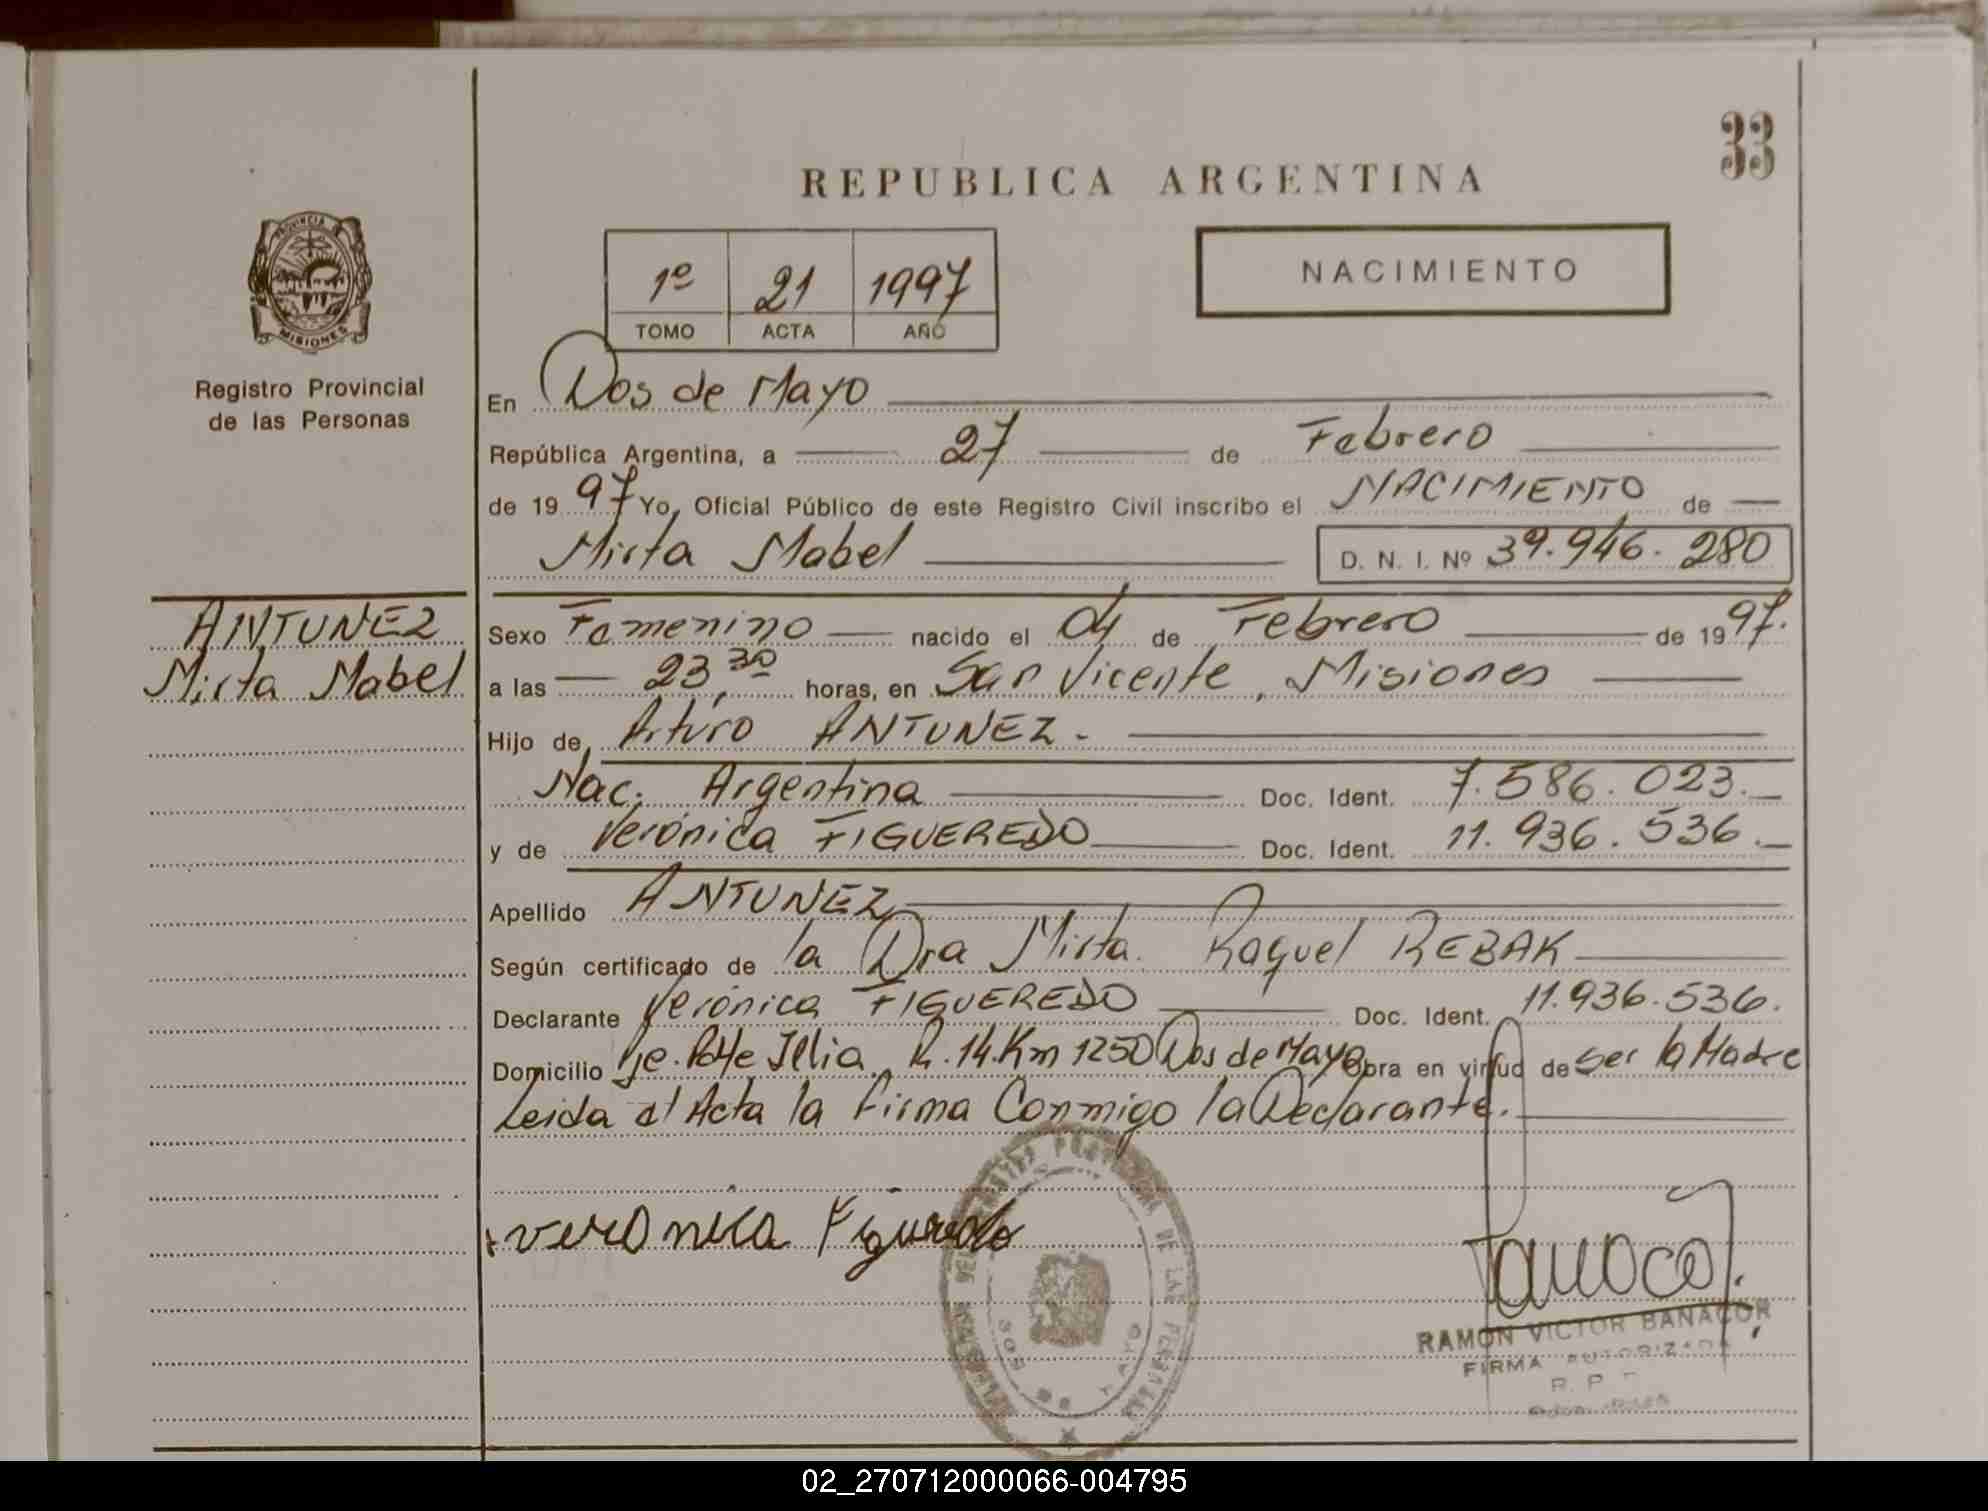 33
REPUBLICA ARGENTINA
PROVINCIA
MISIONES
Registro Provincial
de las Personas
1º 21 1997
TOMO ACTA AÑO
NACIMIENTO
En Dos de Mayo
República Argentina, a 27 de Febrero
de 1997 Yo, Oficial Público de este Registro Civil inscribo el NACIMIENTO de
Mirta Mabel D. N. I. Nº 39.946.280
ANTUNEZ
Mirta Mabel
Sexo Femenino nacido el 04 de Febrero de 1997.
a las 23,30 horas, en San Vicente, Misiones
Hijo de Arturo ANTUNEZ.
Nac. Argentina Doc. Ident. 7.586.023.
y de Verónica FIGUEREDO Doc. Ident. 11.936.536.
Apellido ANTUNEZ
Según certificado de la Dra Mirta Raquel REBAK
Declarante Verónica FIGUEREDO Doc. Ident. 11.936.536.
Domicilio Pje. Pdte Illia. R. 14. Km 1250 Dos de Mayo Obra en virtud de ser la Madre
Leida el Acta la firma Conmigo la Declarante.
veronica Figueredo
DE LAS PERSONAS
DOS DE MAYO
RAMON VICTOR BANACOR
FIRMA AUTORIZADA
02_270712000066-004795